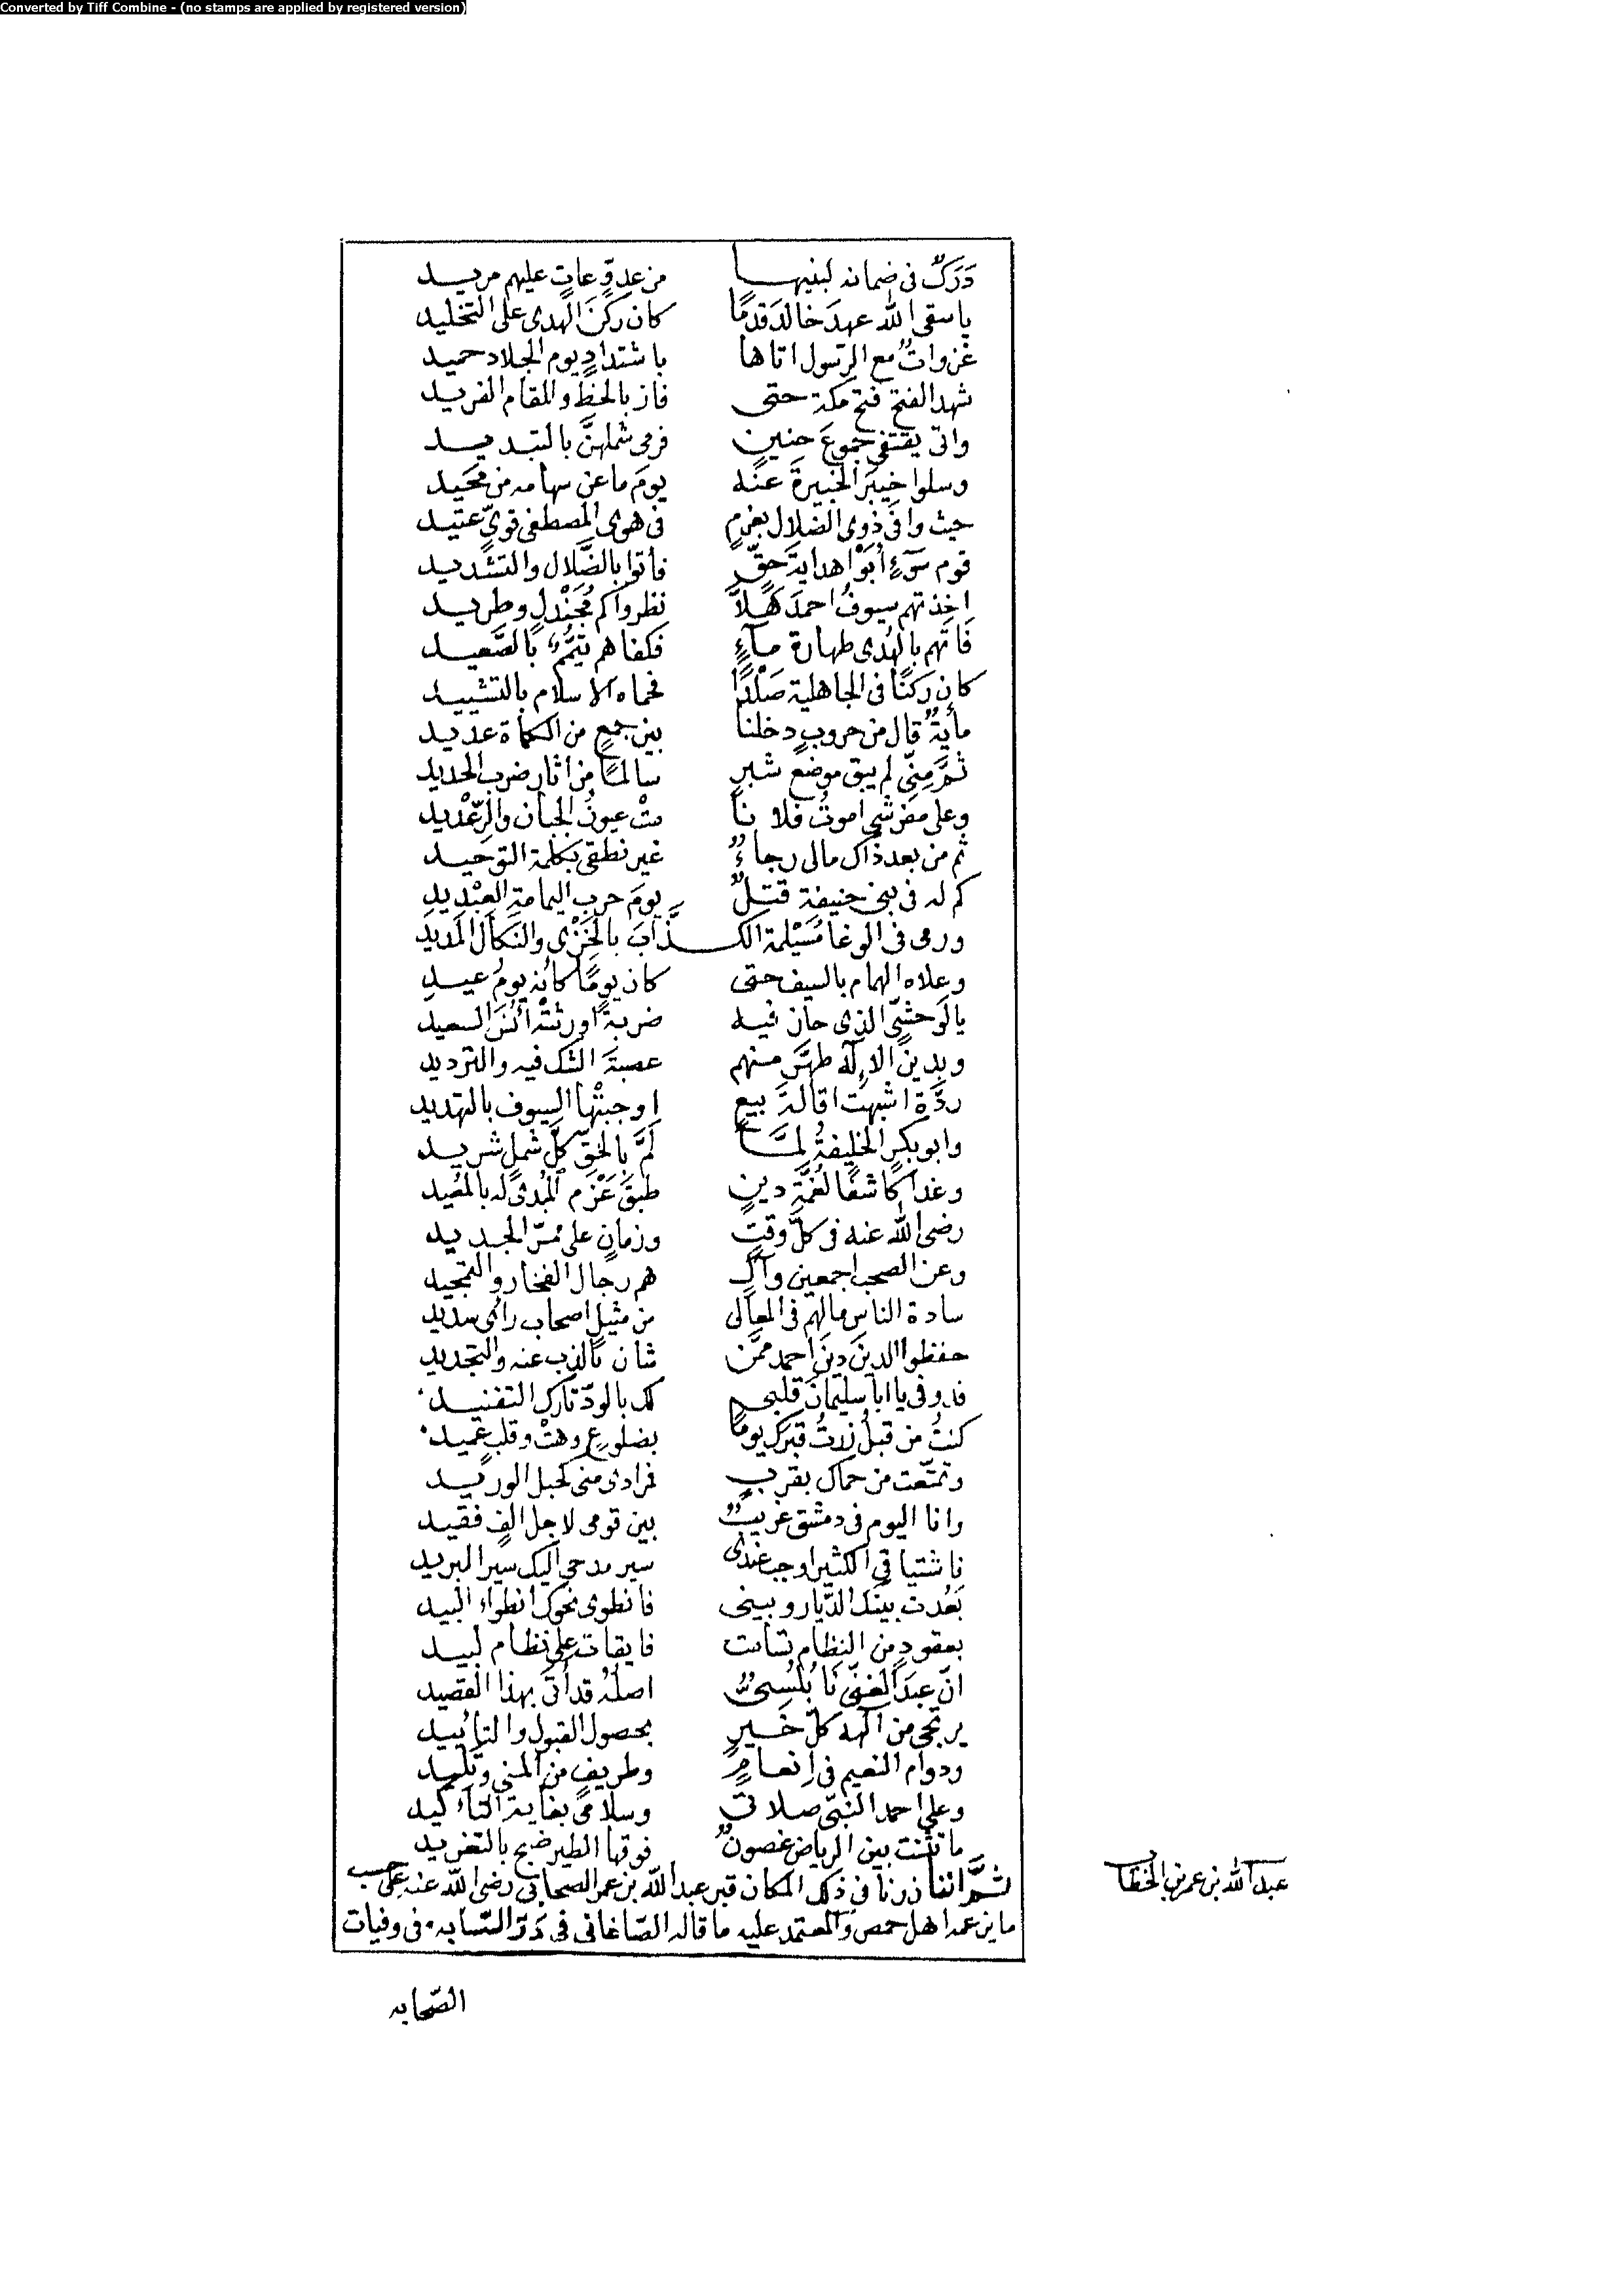 Converted by Tiff Combine - (no stamps are applied by registered version)
دَرَكٌ فى ضمانه لبنيها من عدوٍّ عاتٍ عليهم مريد
يا سقى الله عهدَ خالدَ قدمًا كان ركنَ الهدى على التخليد
غزواتٌ مع الرسول اتاها باشتدادٍ يوم الجلاد حميد
شهد الفتح فتح مكة حتى فاز بالحظّ والمقام الفريد
واتى يقتفى جموعَ حنينٍ فرمى شملهنَّ بالتبديد
وسلوا خيبرَ الخبيرةَ عنه يومَ ما عن سهامه من محَيد
حيث وافى ذوى الضلال بعزمٍ فى هوى المصطفى قوىٍّ عتيد
قوم سَوءٍ أبَوْا هدايةَ حقٍّ فأتوا بالضَّلال والتشديد
اخذتهم سيوفُ احمدَ كَهْلاً نظروا كم مُجَنْدلٍ وطريد
فاتهم بالهُدى طهارة مآءٍ فكفاهم تيمُّمٌ بالصَّعيد
كان ركنًا فى الجاهلية صَلْدًا فحماه الاسلام بالتشييد
مايةٌ قال من حروبٍ دخلنا بين جمعٍ من الكماة عديد
ثمَّ مِنّى لم يبق موضع شبرٍ سالمًا من اثار ضرب الحديد
وعلى مفرشى اموتُ فلا نا متْ عيونُ الجبان والرِّعْديد
ثم من بعد ذاك مالى رجاءٌ غير نطقى بكلمة التوحيد
كم له فى بنى حنيفة قتلٌ يومَ حربِ اليمامةِ العِبْديد
ورمى فى الوغا مُسَيْلمة الكذَّابَ بالخزْى والنكال المديد
وعلاه الهمام بالسيف حتى كان يومًا كأنه يومُ عيدِ
يالَوحشىّ الذى حان فيه ضربةً اورثتْه انْسَ السعيد
وبدين الإله طهَّر منهم عصبةَ الشك فيه والترديد
ردّةٌ اشبهت اقالةَ بيعٍ اوجبتْها السيوف بالتهديد
وابو بكرٍ الخليفةُ لمَّا لمَّ بالحقّ كلَّ شملٍ شريد
وغدا كاشفًا لغُمَّةِ دينٍ طبقَ عَزْم المُبدئِ له بالمُعيد
رضى الله عنه فى كلّ وقتٍ وزمانٍ على ممرّ الجديد
وعن الصحب اجمعين وآلٍ هم رجال الفخار والتمجيد
سادة الناس مالهم فى المعالى من مثيلٍ اصحاب رأى سديد
حفظوا الدين دينَ احمد ممَّن شان بالذب عنه والتجديد
فدو فى يا ابا سليمانَ قلبى لك بالودّ تارك التفنيد
كنتُ من قبلُ زرتُ قبرك يومًا بضلوعٍ وهتْ وقلبٍ عميد
وتمتّعت من حماك بقربٍ فمرادى منى كحبل الوريد
وانا اليوم فى دمشق غريبٌ بين قومى لاجل الفٍ فقيد
فاشتياقى الكثير اوجب عندى سير مدحى اليك سير البريد
بَعُدت بينك الديار وبينى فانطوى نحوك انطواء البيد
بعقودٍ من النظام تسامت فايقات على نظام لبيد
انّ عبدَ الغنىّ نابُلُسىٌّ اصلُه قد أتى بهذا القصيد
يرتجى من الهه كلَّ خَيرٍ بحصول القبول والتأييد
ودوام النعيم فى إنعامٍ وطريفٍ من المنى وتليد
وعلى احمد النبىّ صلاتى وسلامى بغاية التأكيد
ما تثنت بين الرياض غصونٌ فوقها الطير ضج بالتغريد
ثمَّ اننا زرنا فى ذلك المكان قبر عبد الله بن عمر الصحابى رضى الله عنه على حسب
عبد الله بن عمر بن الخطاب
ما يزعمه اهل حمص والمعتمد عليه ما قاله الصّاغانى فى دَرّ السّحابه فى وفيات
الصّحابه